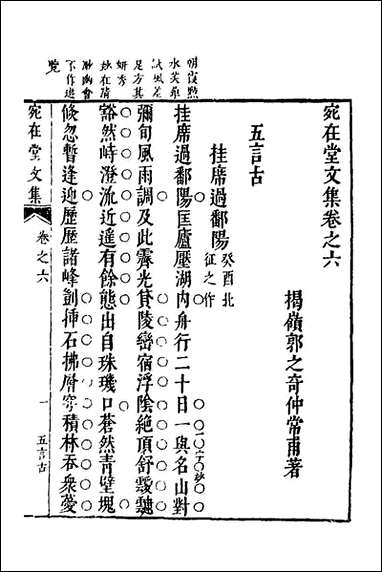 宛在堂文集卷之六
揭嶺郭之奇仲常甫著
五言古
挂席過鄱陽癸酉北征之作
挂席過鄱陽匡廬壓湖内舟行二十日一與名山對
彌旬風雨調及此霽光貸陵巒宿浮陰絶頂舒靉靆
豁然峙澄流近遥有餘態出自珠璣口蒼然靑壁塊
倐忽暫逢迎歷歷諸峰劊揷石拂層穹積林吞衆薆
宛在堂文集
卷之六
一
五言古
朝霞點
水芙蓉
試風差
足方其
妍秀
妙在隋
耿幽會
下作遠
覽